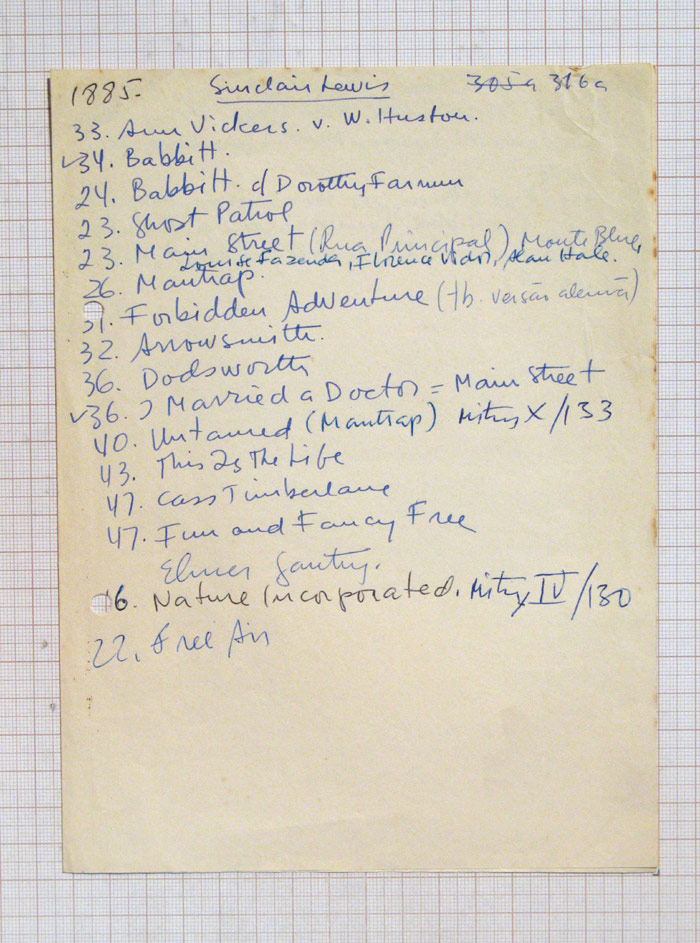 1885. Sinclair Lewis 305a 316a
33. Ann Vickers. v. W. Huston.
✓34. Babbitt.
24. Babbitt. c/ Dorothy Farnum
23. Ghost Patrol
23. Main Street (Rua Principal) Monte Blue,
Louise Fazenda, Florence Vidor, Alan Hale.
26. Mantrap.
31. Forbidden Adventure (tb. versão alemã)
32. Arrowsmith.
36. Dodsworth
✓36. I Married a Doctor = Main Street
40. Untamed (Mantrap) Mitry X/133
43. This Is The Life
47. Cass Timberlane
47. Fun and Fancy Free
Elmer Gantry.
16. Nature Incorporated. Mitry IV/130
22. Free Air